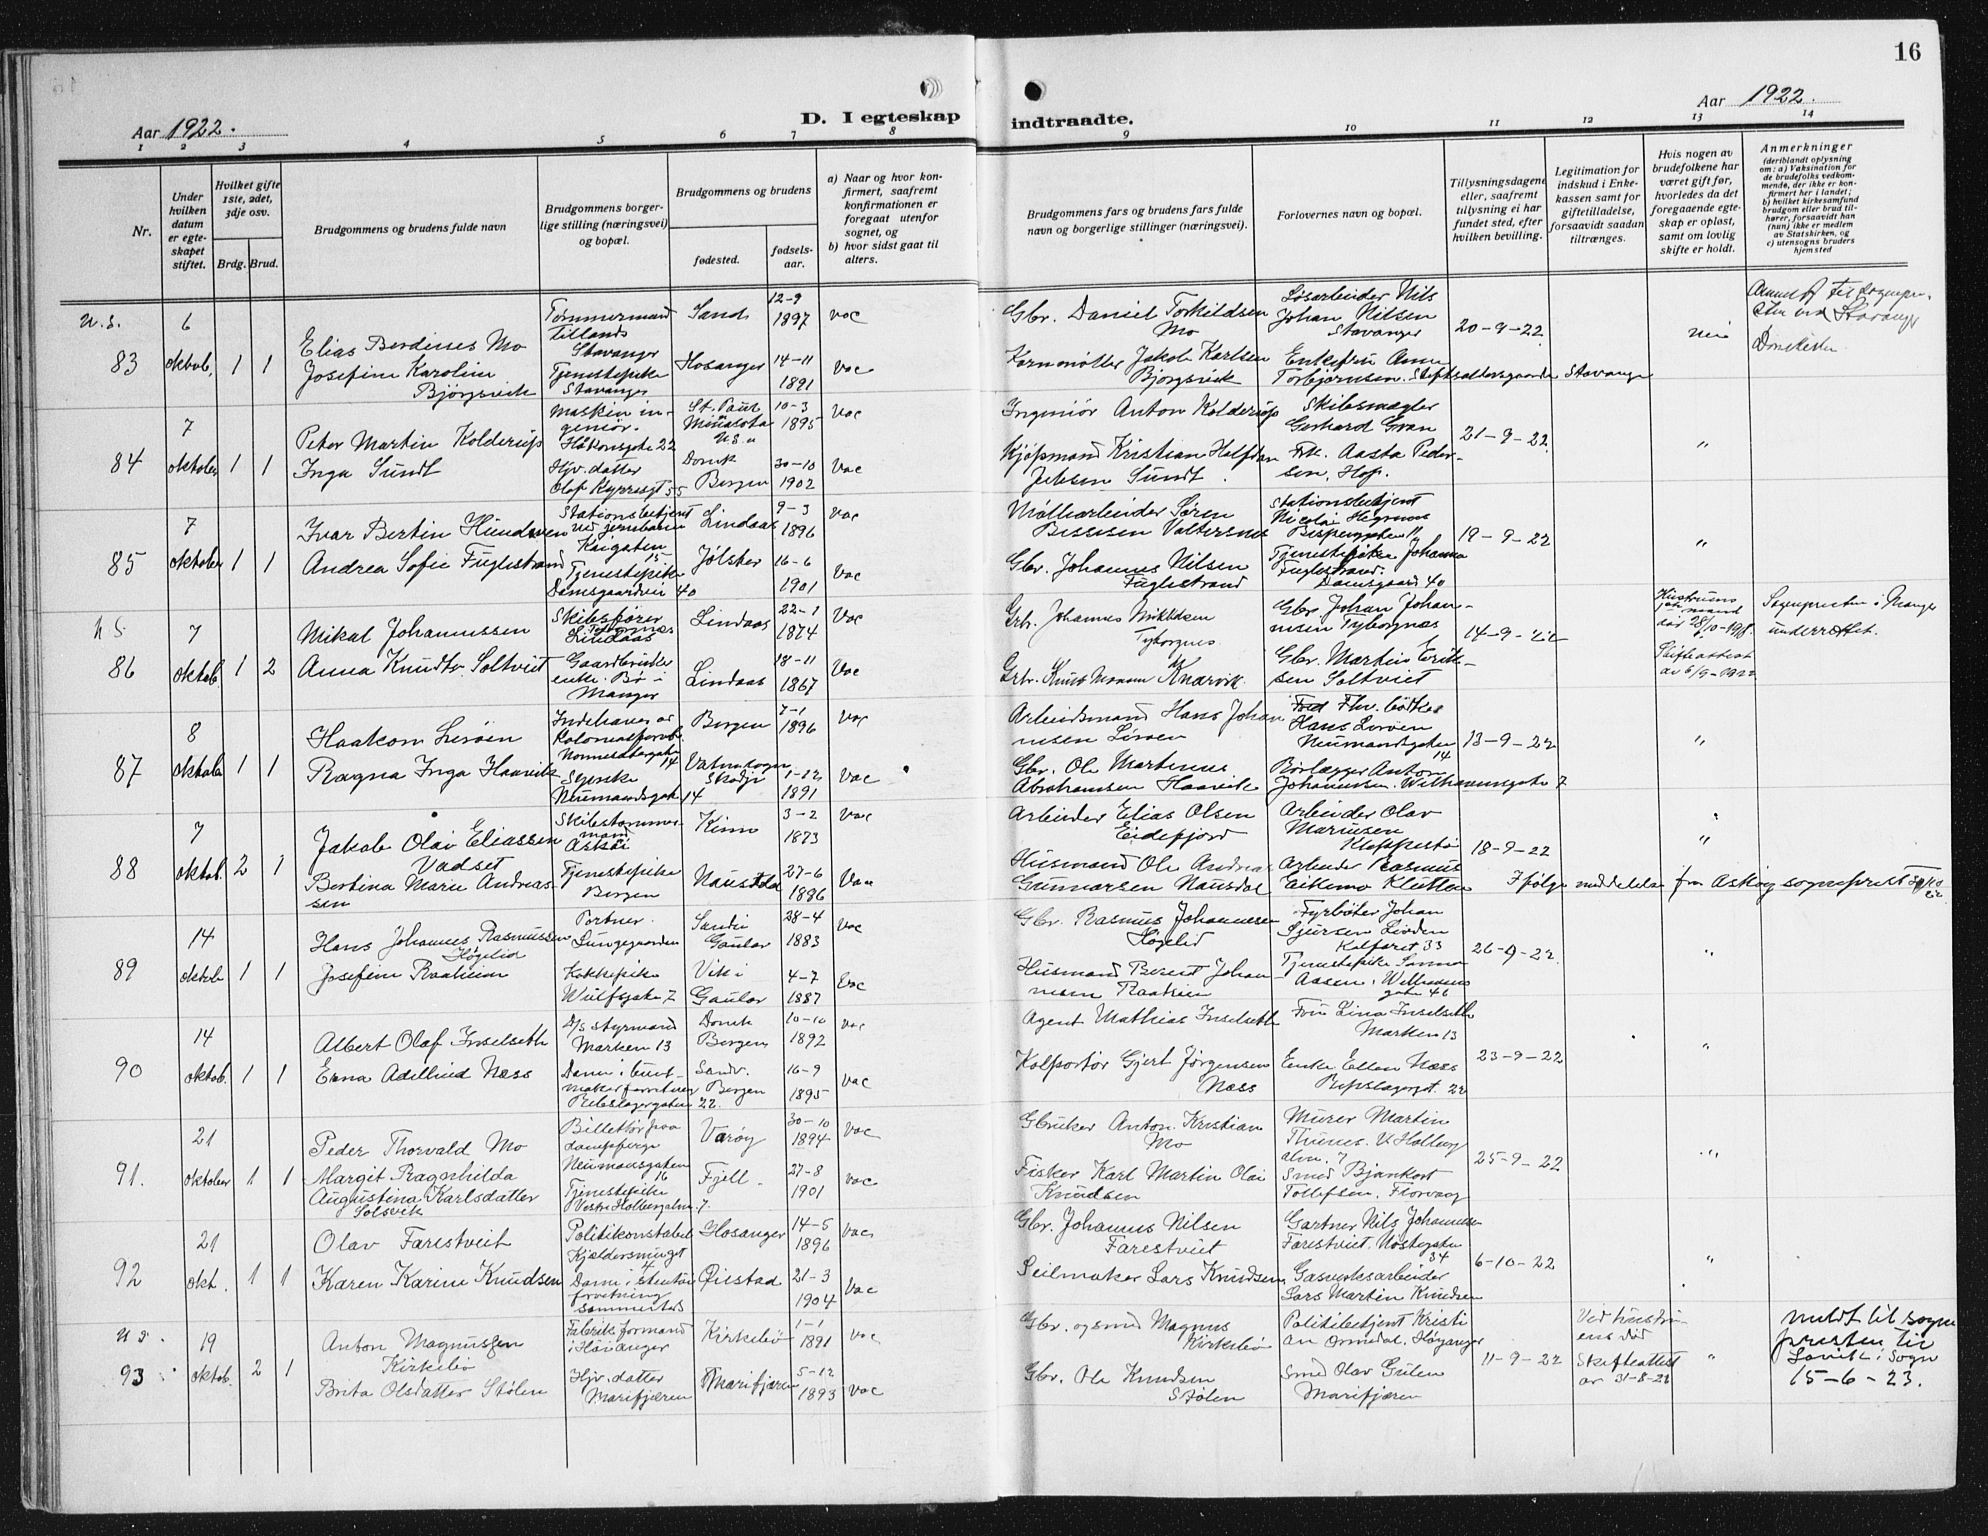 16
Aar 1922.
D. I egteskap
indtraadte.
Aar 1922.
1 2 3 4 5 6 7 8 9 10 11 12 13 14
Nr.
Under hvilken datum er egteskapet stiftet.
Hvilket gifte 1ste, 2det, 3dje osv.
Brdg. Brud.
Brudgommens og brudens fulde navn
Brudgommens borgerlige stilling (næringsvei) og bopæl.
Brudgommens og brudens
fødested.
fødselsaar.
a) Naar og hvor konfirmert, saafremt konfirmationen er foregaat utenfor sognet, og
b) hvor sidst gaat til alters.
Brudgommens fars og brudens fars fulde navn og borgerlige stillinger (næringsvei).
Forlovernes navn og bopæl.
Tillysningsdagene eller, saafremt tillysning ei har fundet sted, efter hvilken bevilling.
Legitimation for indskud i Enkekassen samt for giftetilladelse, forsaavidt saadan tiltrænges.
Hvis nogen av brudefolkene har været gift før, hvorledes da det foregaaende egteskap er opløst, samt om lovlig skifte er holdt.
Anmerkninger
(deriblandt oplysning om: a) Vaksination for de brudefolks vedkommende, der ikke er konfirmert her i landet; b) hvilket kirkesamfund brudgom eller brud tilhører, forsaavidt han (hun) ikke er medlem av Statskirken, og c) utensogns bruders hjemsted
u. s. 6
83 oktob. 1 1
Elias Berdines Mo
Josefine Karoline
Bjørgsvik
Tømmermand
Tillands
Stavanger
Tjenestepike
Stavanger
Sand
Hosanger
12-9
1897
14-11
1891
vac
vac
Gbr. Daniel Torkildsen
Mo
Kornmøller Jakob Karlsen
Bjørgsvik
Løsarbeider Nils
Johan Nilsen
Stavanger
Enkefru Anna
Torbjørnsen. Stiftsaldersgaarden Stavanger
20-9-22
nei
7
84 oktober 1 1
Peter Martin Kolderup
Inga Sundt
Maskin in-
geniør.
Håkonsgate 22
Hjv. datter
Olaf Kyrresgt 55
St. Paul
Minnesota
U.S.A
Domk
Bergen
10-3
1895
30-10
1902
vac
vac
Ingeniør Anton Kolderup
Kjøpmand Kristian Halfdan
Jebsen Sundt.
Skibsmægler
Gerhard Gran
Frk. Aasta Peder-
sen, Hop.
21-9-22
"
7
85 oktober 1 1
Ivar Bertin Hundven
Andrea Sofie Fuglestrand
Stationsbetjent
ved jernbanen
Kaigaten
15
Tjenestepike
Damsgaardvei 40
Lindaas
Jølster
9-3
1896
16-6
1901
vac
vac
Møllearbeider Søren
Gbr. Johannes Nilsen
Fuglestrand
Stationsbetjent
Nicolai
Tjenestepike Johanna
Fuglestrand.
Damsgaard 40
19-9-22
"
7
86 oktob. 1 2
Mikal Johannessen
Anna Knudtv. Soltviet
Skibsfører
Lindaas
Gaardbruker
enke. Bø i
Manger
Lindaas
Lindaas
22-1
1874
18-11
1867
vac
vac
Grb. Johannes Mikkelsen
Tyborgnes
Grb. Knut Monsen Knarvik
Gbr. Johan Johan-
nesen Tyborgnæs
Gbr. Martin Erik-
sen Soltviet
14-9-22
mand
28/10-1918.
Skifteattest
av 6/9-1922
Sognepresten i Manger
underrettet.
8
87 oktob 1 1
Haakon Lirøen
Ragna Inga Haavik
Indehaver av
Kolonialforret.
Nonnesætergaten
14
Syerske
Neumandsgate 14
Bergen
Vatnesogn
Skodje
7-1
1896
1-12
1891
vac
vac
Arbeidsmand Hans Johan-
nesen Lirøen
Gbr. Ole Martinus
Abrahamsen Haavik
Hans Lirøen
Neumandsgaten
14
Rørlægger Anton
Johannesen. Wilhavnsgate 7
13-9-22
"
7
88 oktob. 2 1
Jakob Olai Eliassen
Vadset
Bertina Marie Andreas-
sen
Skibstømmer-
mand
Askøi
Tjenestepike
Bergen
Kinn
Naustdal
3-2
1873
27-6
1886
vac
vac
Arbeider Elias Olsen
Eidefjord
Husmand Ole Andreas
Gunnarsen Nausdal
Arbeider Olav
Mariusen
Kleppestø
Arbeider Rasmus
18-9-22
"
Ifølge meddelelse fra Askøy sogneprest
14
89 oktob 1 1
Hans Johannes Rasmussen
Høgelid
Josefine Raaheim
Portner.
Lungegaarden
Kokkepike
Wulfsgate 7
Sande
Gaular
Vik i
Gaular
28-4
1883
4-7
1887
vac
vac
Gbr. Rasmus Johannesen
Høgelid
Husmand Berent Johan-
nesen Raaheim
Fyrbøter Johan
Sjursen Linden
Kalfaret 33
Tjenestepike Sanna
Aasen. Welhavens
gate 46
26-9-22
"
14
90 oktob. 1 1
Albert Olaf Inselseth
Erna Adelheid Næss
D/S styrmand
Marken 13
Dame i bunt-
makerforretning
Rebslagergaten 22.
Domk
Bergen
Sandv.
Bergen
10-10
1892
16-9
1895
vac
vac
Agent Mathias Inselseth
Kolportør Gjert Jørgensen
Næss
Fru Lina Inselseth
Marken 13
Enke Ellen Næss
Repslagergt. 22
23-9-22
"
21
91. oktober 1 1
Peder Thorvald Mo
Margit Ragnhilda
Augustina Karlsdatter
Solsvik
Billettør paa
dampferge
Neumansgaten
16
Tjenestepike
Vestre Holbergalm. 7.
Værøy
Fjell
30-10
1894
27-8
1901
vac
vac
Gbruker Anton Kristian
Mo
Fisker Karl Martin Olai
Knudsen
Murer Martin
Thunes. V. Holberg
alm. 7
Smed Bjankort
Tollefsen. Florvaag
25-9-22
"
21
92 okt. 1 1
Olav Farestveit
Karen Karine Knudsen
Politikonstabel
Kjeldersmuget
4
Dame i skotøi
forretning
Hosanger
Øistad
14-5
1896
21-3
1904
vac
vac
Gbr. Johannes Nilsen
Farestveit
Seilmaker Lars Knudsen
Gartner Nils Johannesen
Farestveit. Nøstegaten
34
Gasverksarbeider
Lars Martin Knudsen
6-10-22
"
u s. 19
93 oktob. 2 1
Anton Magnussen
Kirkebø
Brita Olsdatter Stølen
Fabrikformand
i Høianger
Hjv. datter
Marifjæren
Kirkebø
Marifjæren
1-1
1891
5-12
1893
vac
vac
Gbr. og smed Magnus
Kirkebø
Gbr. Ole Knudsen
Stølen
Politibetjent Kristi
an Ormedal. Høyanger
Smed Olav Gulen
Marifjæren
11-9-22
Ved hustru-
ens død
Skifteattest
av 31-8-22
"
meldt til sogne
presten til
Lavik i Sogn
15-6-23.